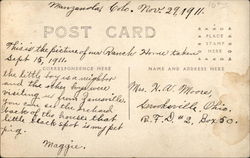 Manzanolas Colo. Nov. 29, 1911.
POST CARD
PLACE
STAMP
HERE
This is the picture of our Ranch Home taken
Sept 15, 1911.
CORRESPONDENCE HERE
NAME AND ADDRESS HERE
the little boy is a neighbor
and the other boys were
visiting us from
you can see the school
back of the houses that
little black spot is my pet
pig.
Maggie.
Mrs. H. W. Moore,
Brookville, Ohio.
R.F.D. #2, Box 50.